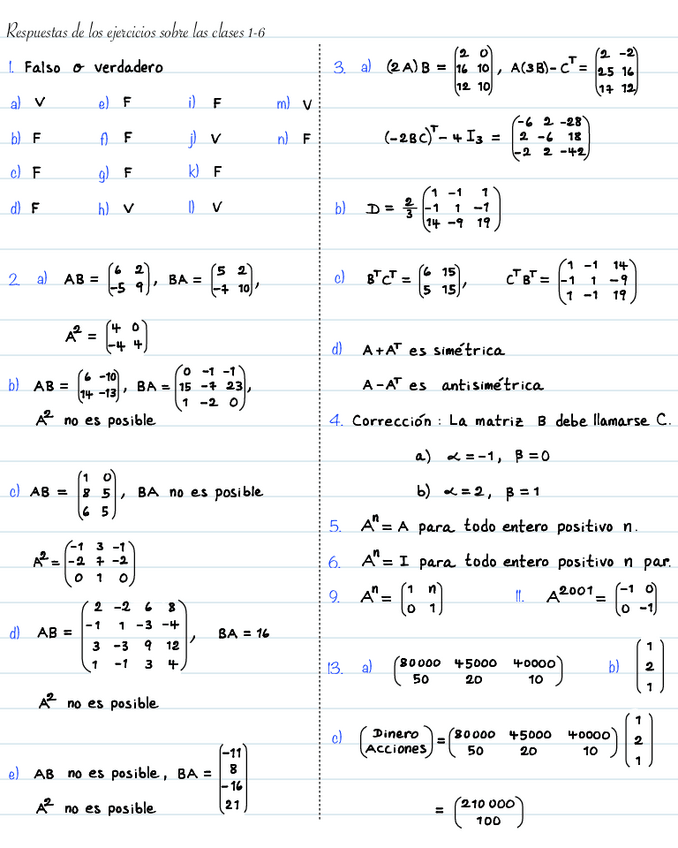 Respuestas de los ejercicios sobre las clases 1-6
1. Falso o verdadero
a) V e) F i) F m) V
b) F f) F j) V n) F
c) F g) F k) F
d) F h) V l) V
2 a) AB = (6 2 / -5 9), BA = (5 2 / -7 10),
A² = (4 0 / -4 4)
b) AB = (6 -10 / 14 -13), BA = (0 -1 -1 / 15 -7 23 / 1 -2 0),
A² no es posible
c) AB = (1 0 / 8 5 / 6 5), BA no es posible
A² = (-1 3 -1 / -2 7 -2 / 0 1 0)
d) AB = (2 -2 6 8 / -1 1 -3 -4 / 3 -3 9 12 / 1 -1 3 4), BA = 16
A² no es posible
e) AB no es posible, BA = (-11 / 8 / -16 / 21)
A² no es posible
3. a) (2A)B = (2 0 / 16 10 / 12 10), A(3B)-Cᵀ = (2 -2 / 25 16 / 17 12)
(-2BC)ᵀ - 4I₃ = (-6 2 -28 / 2 -6 18 / -2 2 -42)
b) D = 2/3 (1 -1 1 / -1 1 -1 / 14 -9 19)
c) BᵀCᵀ = (6 15 / 5 15), CᵀBᵀ = (1 -1 14 / -1 1 -9 / 1 -1 19)
d) A+Aᵀ es simétrica
A-Aᵀ es antisimétrica
4. Corrección: La matriz B debe llamarse C.
a) α=-1, β=0
b) α=2, β=1
5. Aⁿ = A para todo entero positivo n.
6. Aⁿ = I para todo entero positivo n par.
9. Aⁿ = (1 n / 0 1) 11. A²⁰⁰¹ = (-1 0 / 0 -1)
13. a) (80000 45000 40000 / 50 20 10) b) (1 / 2 / 1)
c) (Dinero / Acciones) = (80000 45000 40000 / 50 20 10) (1 / 2 / 1)
= (210 000 / 100)